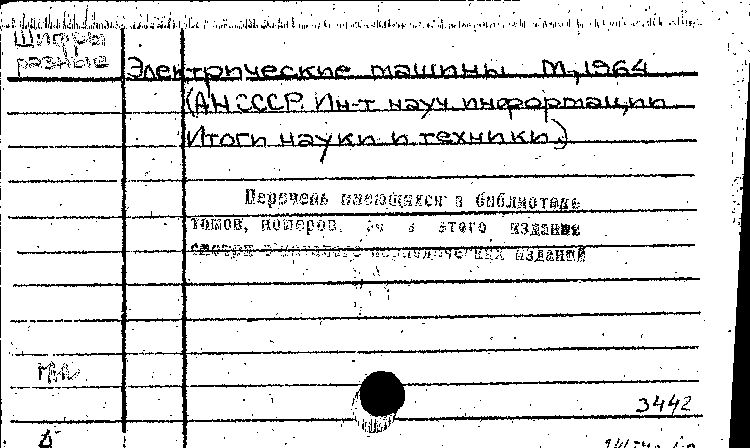 Шифры
разные
Электрические машины М., 1964
(АН СССР. Ин-т науч. информации
Итоги науки и техники.)
Перечень имеющихся в библиотеке
томов, номеров, этого издания
смотри в каталоге периодических изданий
3442